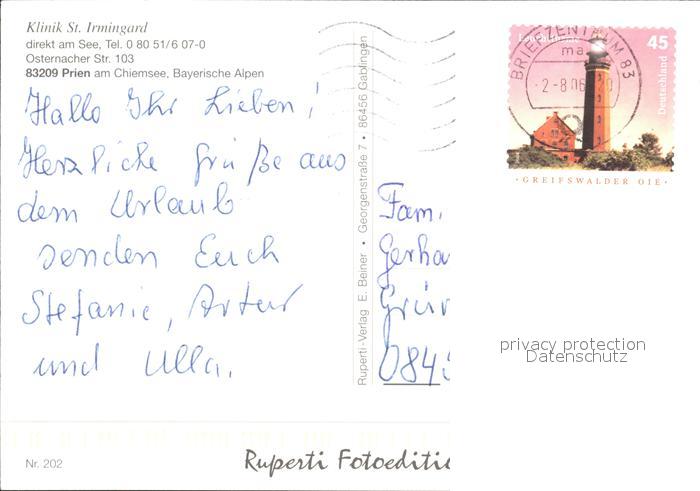 Klinik St. Irmingard
direkt am See, Tel. 0 80 51/6 07-0
Osternacher Str. 103
83209 Prien am Chiemsee, Bayerische Alpen
Hallo Ihr Lieben!
Herzliche Grüße aus
dem Urlaub
senden Euch
Stefanie, Artur
und Ulla.
Nr. 202
Ruperti-Verlag E. Beiner • Georgenstraße 7 • 86456 Gablingen
Ruperti Fotoeditio
45
Deutschland
BRIEFZENTRUM 83
ma
-2-8.06-20
·GREIFSWALDER OIE·
Fam.
Gerha
Grün
0845
privacy protection
Datenschutz